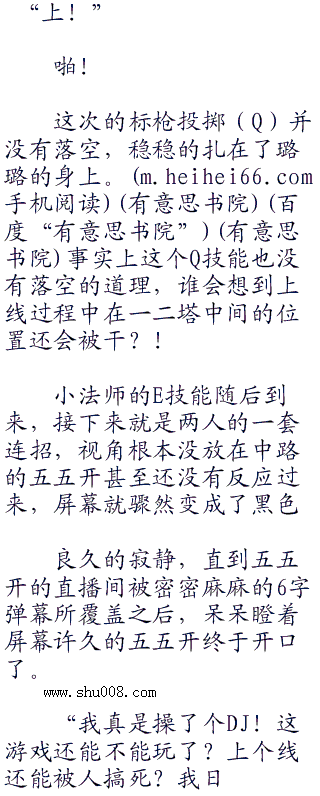 “上！”
啪！
这次的标枪投掷（Q）并
没有落空，稳稳的扎在了璐
璐的身上。(m.heihei66.com
手机阅读)(有意思书院)(百
度“有意思书院”)(有意思
书院)事实上这个Q技能也没
有落空的道理，谁会想到上
线过程中在一二塔中间的位
置还会被干？！
小法师的E技能随后到
来，接下来就是两人的一套
连招，视角根本没放在中路
的五五开甚至还没有反应过
来，屏幕就骤然变成了黑色
良久的寂静，直到五五
开的直播间被密密麻麻的6字
弹幕所覆盖之后，呆呆瞪着
屏幕许久的五五开终于开口
了。
www.shu008.com
“我真是操了个DJ！这
游戏还能不能玩了？上个线
还能被人搞死？我日